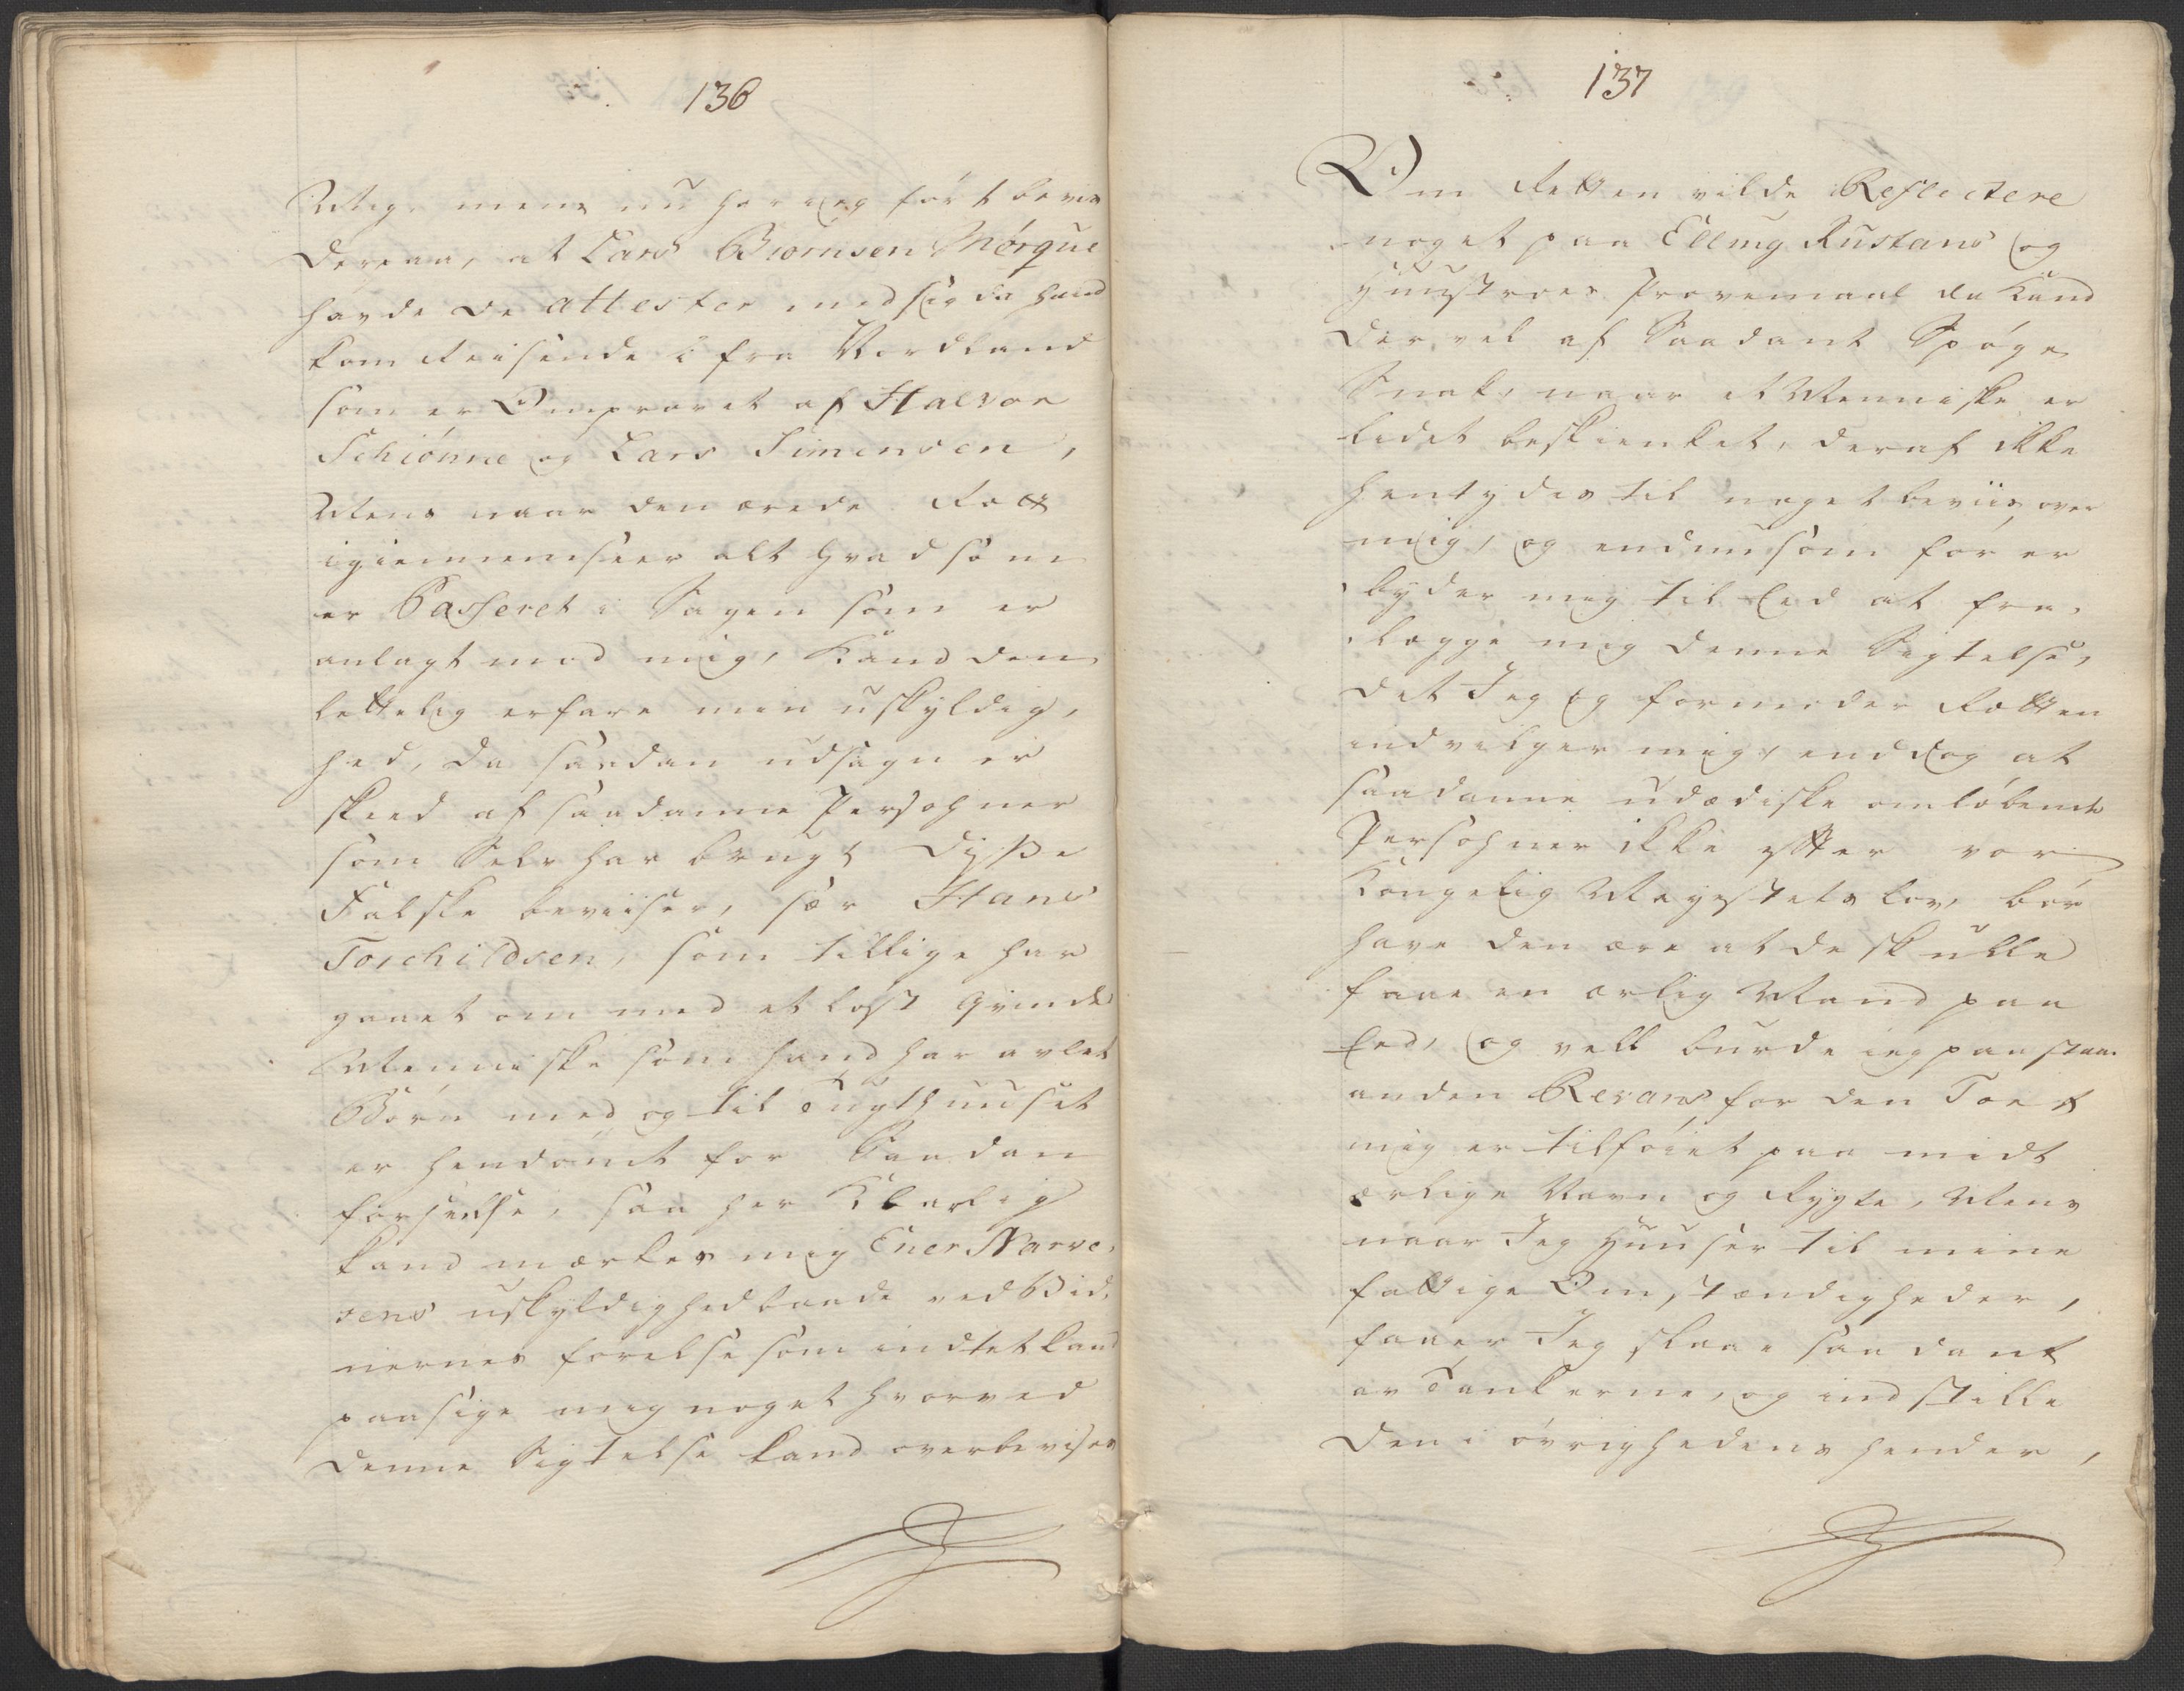 136
Mig, mens nu har Jeg ført bevis
derpaa, at Lars Biornsen Mørque
havde de attester med sig da hand
kom Reisende i fra Nordland
som er Omprovet af Halvor
Schiønne og Lars Simensen,
Mens naar den ærede Rætt
igiennemseer alt hvad som
er Passeret i Sagen som er
anlagt mod mig, Kand den
lettelig erfare min uskyldig,
hed, da saadan udsagn er
skeed af saadanne Persohner
som Selv har brugt disse
Falske beviiser, sær Hans
Torchildsen, som tillige har
gaaet om med et løst Qvinde
Menniske som hand har avlet
Børn med og til Tugthuuset
er hendømt for Saadan
forseelse, saa her Klarlig
kand mærkes mig Ener Narve,
sens uskyldighed baade ved Vid,
nernes forelse som indtet kand
paasige mig noget hvorved
denne Sigtelse kand overbevises
137
Om Retten vilde Reflectere
noget paa Elling Rustans og
Huustroes Provemaal da Kand
der vel af Saadant Spøge
Snak, naar et Menniske er
lidet beskienket, deraf ikke
hentydes til noget beviis over
mig, og endnu som før er
byder mig til Eed at fra,
lægge mig denne Sigtelse,
det Jeg og formoder Rætten
indvilger mig, enddog at
saadanne udædiske omløbende
Persohner ikke efter vor
Kongelig Mayestets lov, bør
have den ære at de skulle
faae en ærlig Mand paa
Eed, og vell burde ieg paastaae
anden Revans for den Tort
mig er tilføiet paa midt
ærlige Navn og Rygte, Mens
naar Jeg Huuser til mine
fattige Omstændigheder,
faaer Jeg slaae saadant
av Tankerne, og indstille
den i øvrighedens hender,